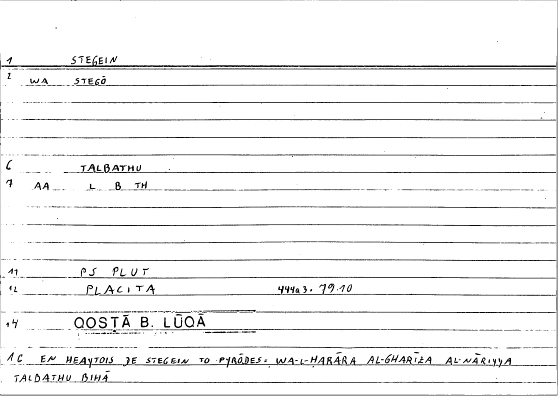 1 STEGEIN
2 WA STEGŌ
6 TALBATHU
7 AA L B TH
11 PS PLUT
12 PLACITA 444a3. 79.10
14 QOSṬĀ B. LŪQĀ
16 EN HEAYTOIS DE STEGEIN TO PYRŌDES: WA-L-ḤARĀRA AL-GHARĪZA AL-NĀRIYYA
TALBATHU BIHĀ